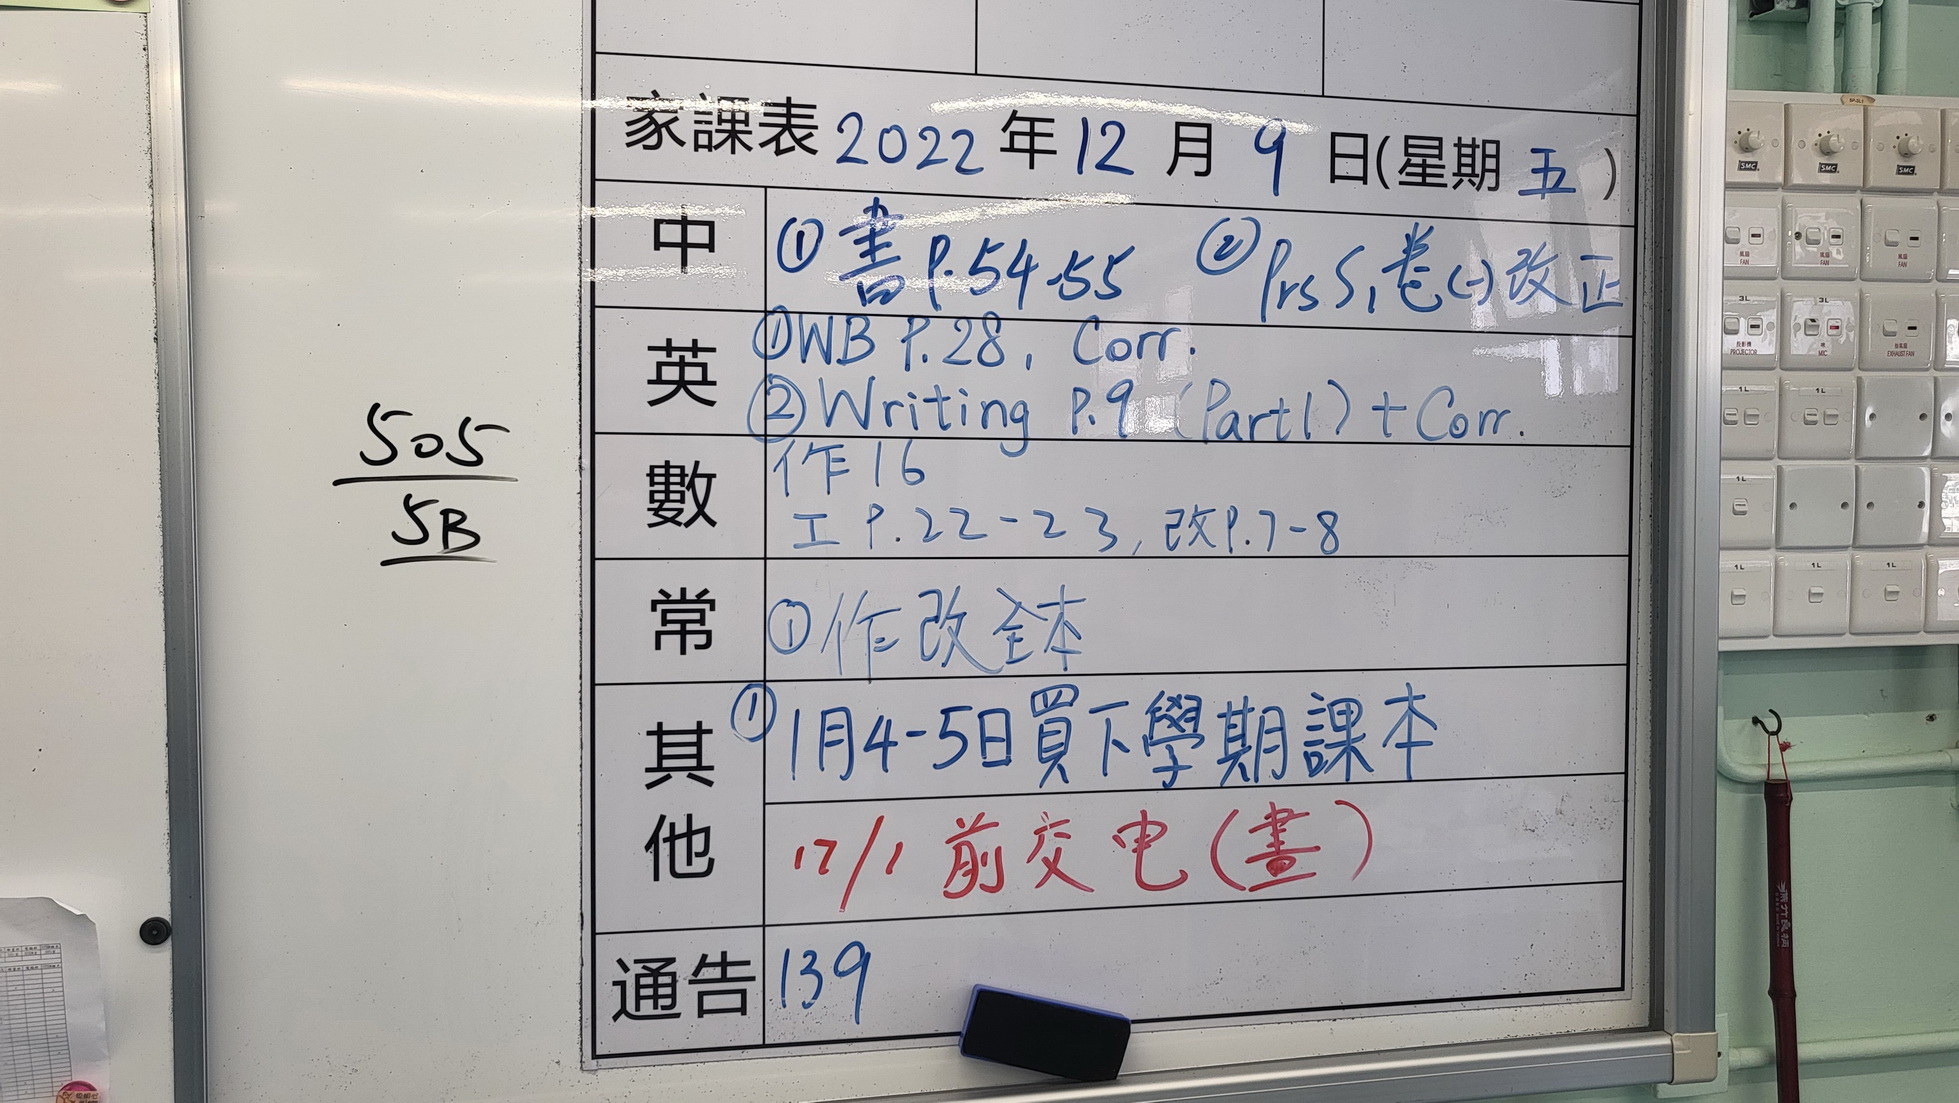 505
5B
家課表 2022 年 12 月 9 日(星期 五 )
中 ① 書 P.54-55 ② Prs S1 卷(一)改正
英 ①WB P.28, Corr.
②Writing P.9 (Part 1) + Corr.
數 作16
工 P.22-23, 改P.7-8
常 ①作改全本
其他 ① 1月4-5日買下學期課本
17/1 前交电(書)
通告 139
SMC
SMC
SMC
風扇
FAN
風扇
FAN
風扇
FAN
3L
3L
投影機
PROJECTOR
MIC
抽氣扇
EXHAUST FAN
1L
1L
1L
1L
1L
1L